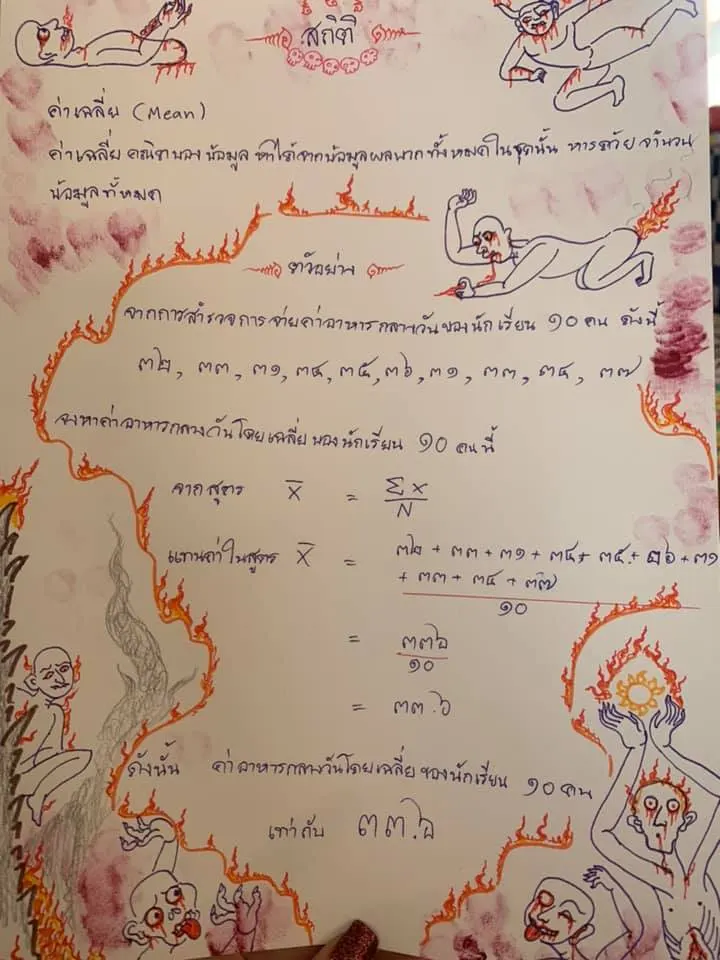 สถิติ
ค่าเฉลี่ย (Mean)
ค่าเฉลี่ย คณิตของข้อมูล หาได้จากข้อมูลผลบวกทั้งหมดในชุดนั้น หารด้วย จำนวน
ข้อมูลทั้งหมด
ตัวอย่าง
จากการสำรวจการจ่ายค่าอาหารกลางวันของนักเรียน ๑๐ คน ดังนี้
๓๒, ๓๓, ๓๑, ๓๔, ๓๕, ๓๖, ๓๑, ๓๓, ๓๔, ๓๗
จงหาค่าอาหารกลางวันโดยเฉลี่ยของนักเรียน ๑๐ คนนี้
จากสูตร X̄ = Σx/N
แทนค่าในสูตร X̄ = ๓๒ + ๓๓ + ๓๑ + ๓๔ + ๓๕ + ๓๖ + ๓๑
+ ๓๓ + ๓๔ + ๓๗
๑๐
= ๓๓๖
๑๐
= ๓๓.๖
ดังนั้น ค่าอาหารกลางวันโดยเฉลี่ยของนักเรียน ๑๐ คน
เท่ากับ ๓๓.๖